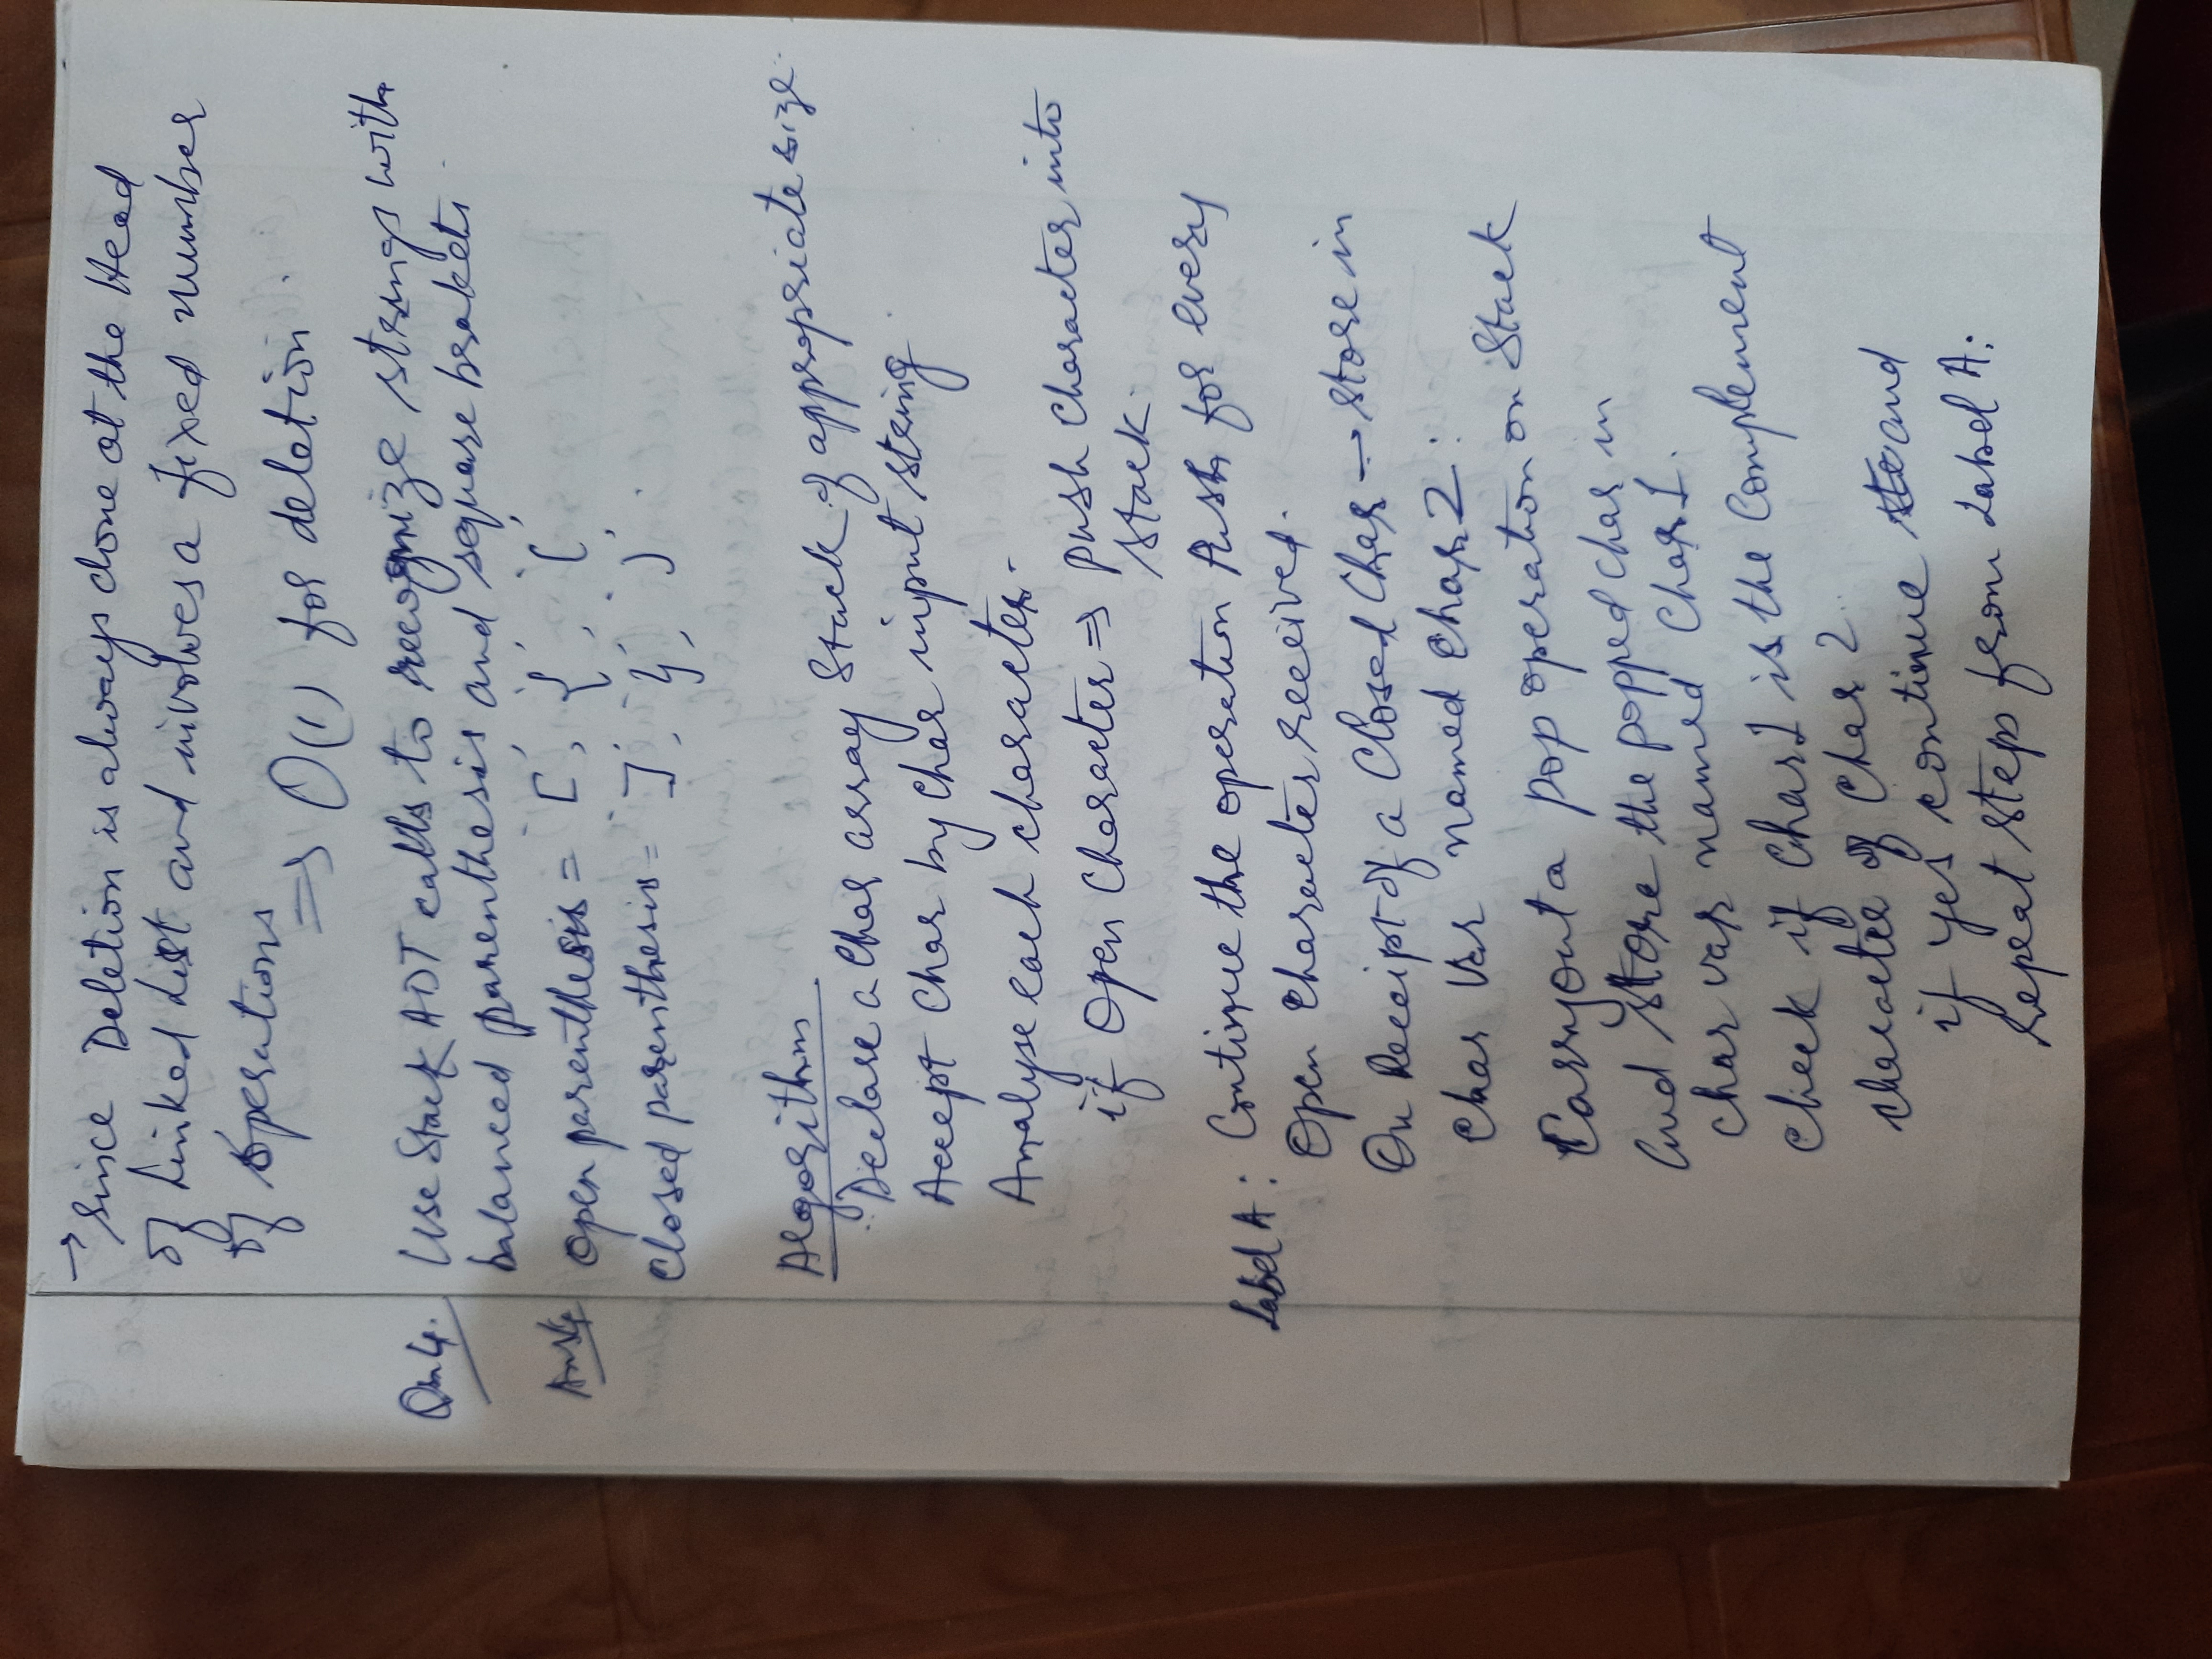 → Since Deletion is always done at the Head
of Linked List and involves a fixed number
of operations
⇒ O(1) for deletion.
Qn 4. Use Stack ADT calls to recognize strings with
balanced parenthesis and square brakets.
Ans 4 open parenthesis = [, {, (,
closed parenthesis = ], }, ),
Algorithm
Declare a char array Stack of appropriate size.
Accept char by char input string.
Analyse each character.
if Open Character ⇒ push character into
stack.
Label A: Continue the operation Push for every
Open character received.
On Receipt of a Closed Char → store in
char var named char 2.
Carryout a pop operation on Stack
and store the popped char in
char var named Char 1.
Check if char 1 is the Complement
character of char 2.
if yes continue and
repeat steps from Label A: